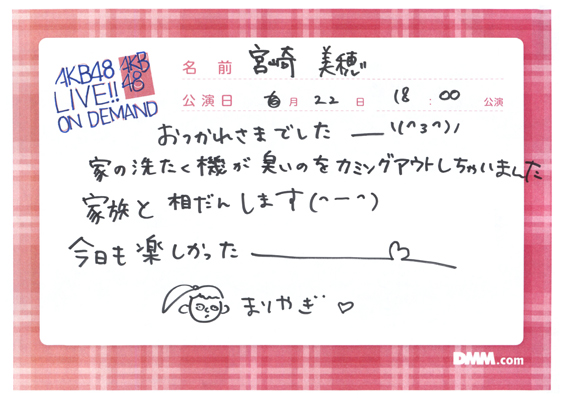 AKB48
LIVE!!
ON DEMAND
AKB
48
名前 宮崎 美穂
公演日 月 22 日 18:00 公演
おつかれさまでした ー \(^3^)/
家の洗たく機が臭いのをカミングアウトしちゃいました
家族と相だんします(^ー^)
今日も楽しかった ♡
まりやぎ♡
DMM.com